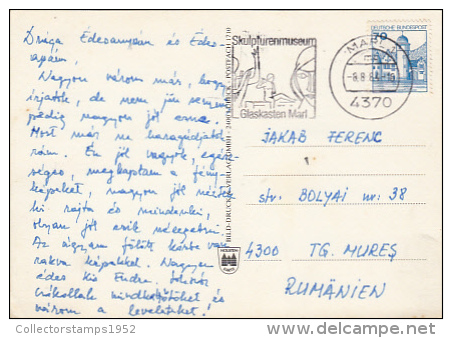 Drága Édesanyám és Édes-
apám!
Nagyon várom már, hogy
írjatok, de nem jön semmi
pedig nagyon jól
Most már ne haragudjatok
rám. Én jól vagyok, egész-
séges, megkaptam a fény-
képeket, nagyon jól néztek
ki rajta és mindenki,
olyan jól esik nézegetni.
Az ágyam fölött körbe van
rakva képekkel. Nagyon
édes kis Endre,
csókollak mindkettőtöket és
várom a leveleiteket!
Skulpturenmuseum
Glaskasten Marl
MARL
-8.8.84
4370
70
DEUTSCHE BUNDESPOST
JAKAB FERENC
str. BOLYAI nr: 38
4300 TG. MUREȘ
RUMÄNIEN
Collectorstamps1952
http://www.delcampe.net